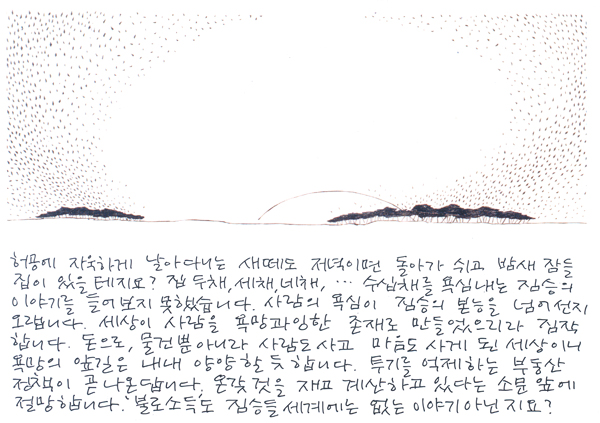 허공에 자욱하게 날아다니는 새떼도 저녁이면 돌아가 쉬고 밤새 잠들
집이 있을 테지요? 집 두채, 세채, 네채, … 수십채를 욕심내는 짐승의
이야기를 들어보지 못했습니다. 사람의 욕심이 짐승의 본능을 넘어선지
오랩니다. 세상이 사람을 욕망과잉한 존재로 만들었으리라 짐작
합니다. 돈으로, 물건뿐아니라 사람도 사고 마음도 사게 된 세상이니
욕망의 앞길은 내내 양양할 듯 합니다. 투기를 억제하는 부동산
정책이 곧 나온답니다. 온갖 것을 재고 계산하고 있다는 소문 앞에
절망합니다. '불로소득'도 짐승들 세계에는 없는 이야기 아닌지요?